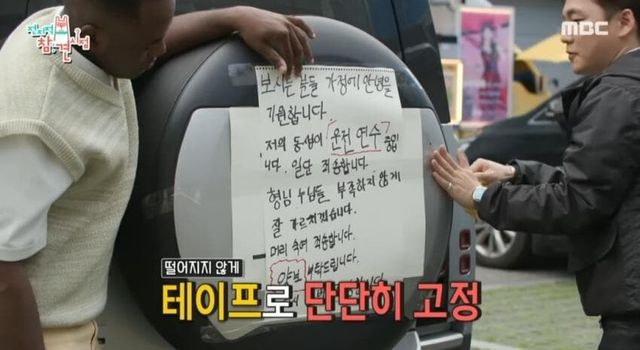 전지적
참견시점
MBC
보시는 분들 가정에 안녕을
기원합니다.
저의 동생이 운전 연수 중입
니다. 일단 죄송합니다.
형님 누님들 부족하지 않게
잘 가르치겠습니다.
머리 숙여 죄송합니다.
양보 부탁드립니다.
떨어지지 않게
테이프로 단단히 고정